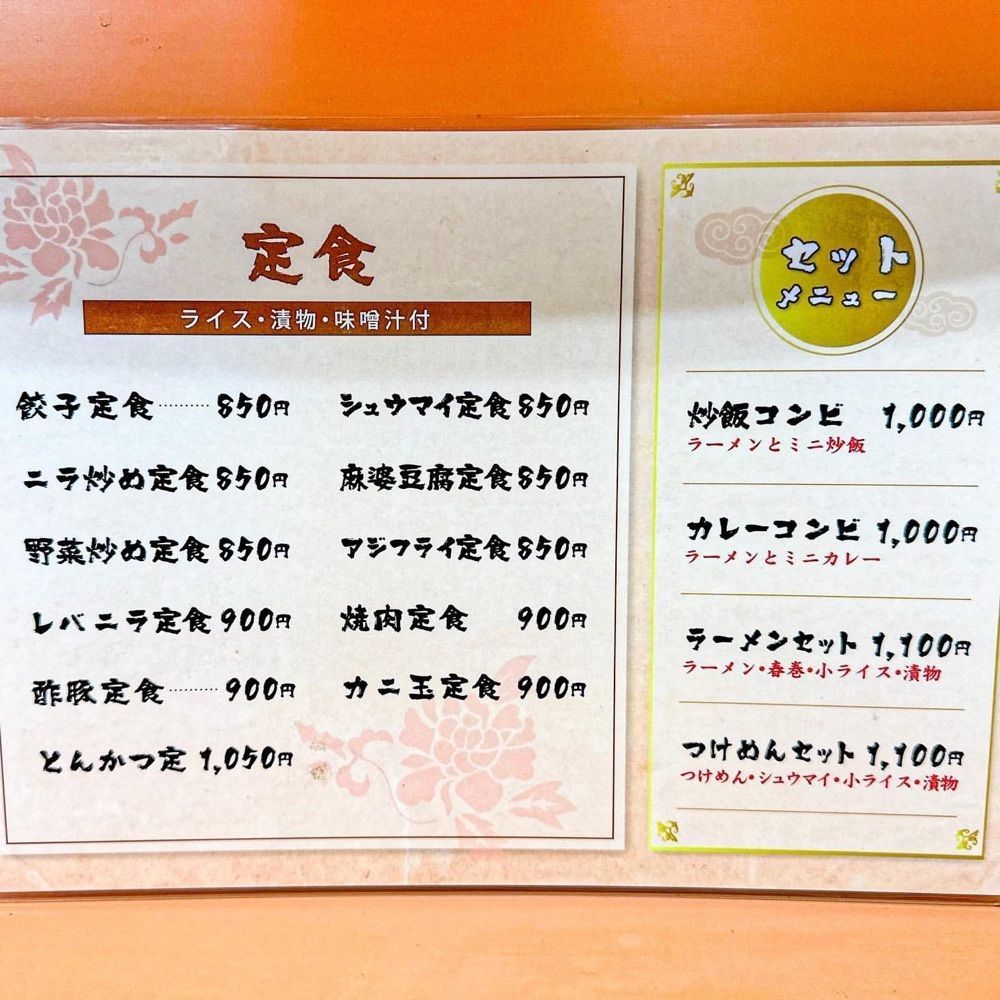 定食
ライス・漬物・味噌汁付
餃子定食………850円
ニラ炒め定食850円
野菜炒め定食850円
レバニラ定食900円
酢豚定食………900円
とんかつ定 1,050円
シュウマイ定食850円
麻婆豆腐定食850円
アジフライ定食850円
焼肉定食 900円
カニ玉定食 900円
セット
メニュー
炒飯コンビ 1,000円
ラーメンとミニ炒飯
カレーコンビ 1,000円
ラーメンとミニカレー
ラーメンセット 1,100円
ラーメン・春巻・小ライス・漬物
つけめんセット 1,100円
つけめん・シュウマイ・小ライス・漬物